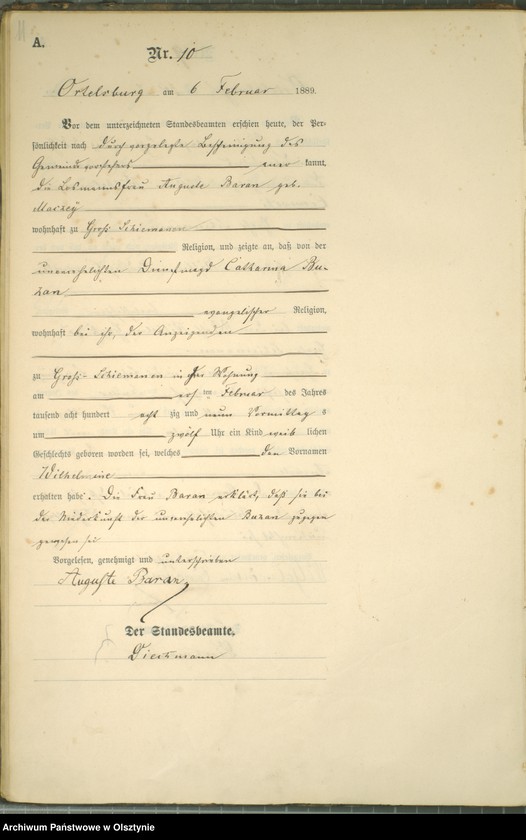 A.
Nr. 10
Ortelsburg am 6 Februar 1889.
Vor dem unterzeichneten Standesbeamten erschien heute, der Per-
sönlichkeit nach durch vorgelegte Bescheinigung des
Gemeindevorstehers aner kannt,
die Losmannsfrau Auguste Baran geb.
wohnhaft zu Groß Schiemanen
Religion, und zeigte an, daß von der
unverehelichten Dienstmagd Catharina Ba-
ran
evangelischer Religion,
wohnhaft bei ihr, der Anzeigenden
zu Groß-Schiemanen in ihrer Wohnung
am ersten Februar des Jahres
tausend acht hundert acht zig und neun Vormittag s
um zwölf Uhr ein Kind weib lichen
Geschlechts geboren worden sei, welches den Vornamen
Wilhelmine
erhalten habe. Die Frau Baran erklärt, daß sie bei
der Niederkunft der unverehelichten Baran zugegen
gewesen sei
Vorgelesen, genehmigt und unterschrieben
Auguste Baran
Der Standesbeamte.
Dieckmann
Archiwum Państwowe w Olsztynie